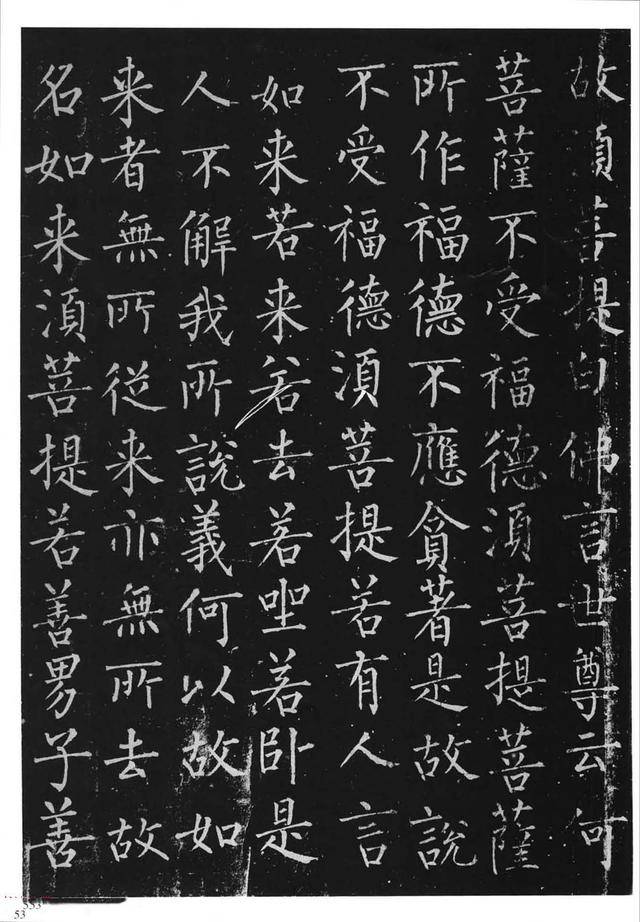 故須菩提白佛言世尊云何
菩薩不受福德須菩提菩薩
所作福德不應貪著是故說
不受福德須菩提若有人言
如来若来若去若坐若卧是
人不解我所說義何以故如
来者無所從来亦無所去故
名如来須菩提若善男子善
53